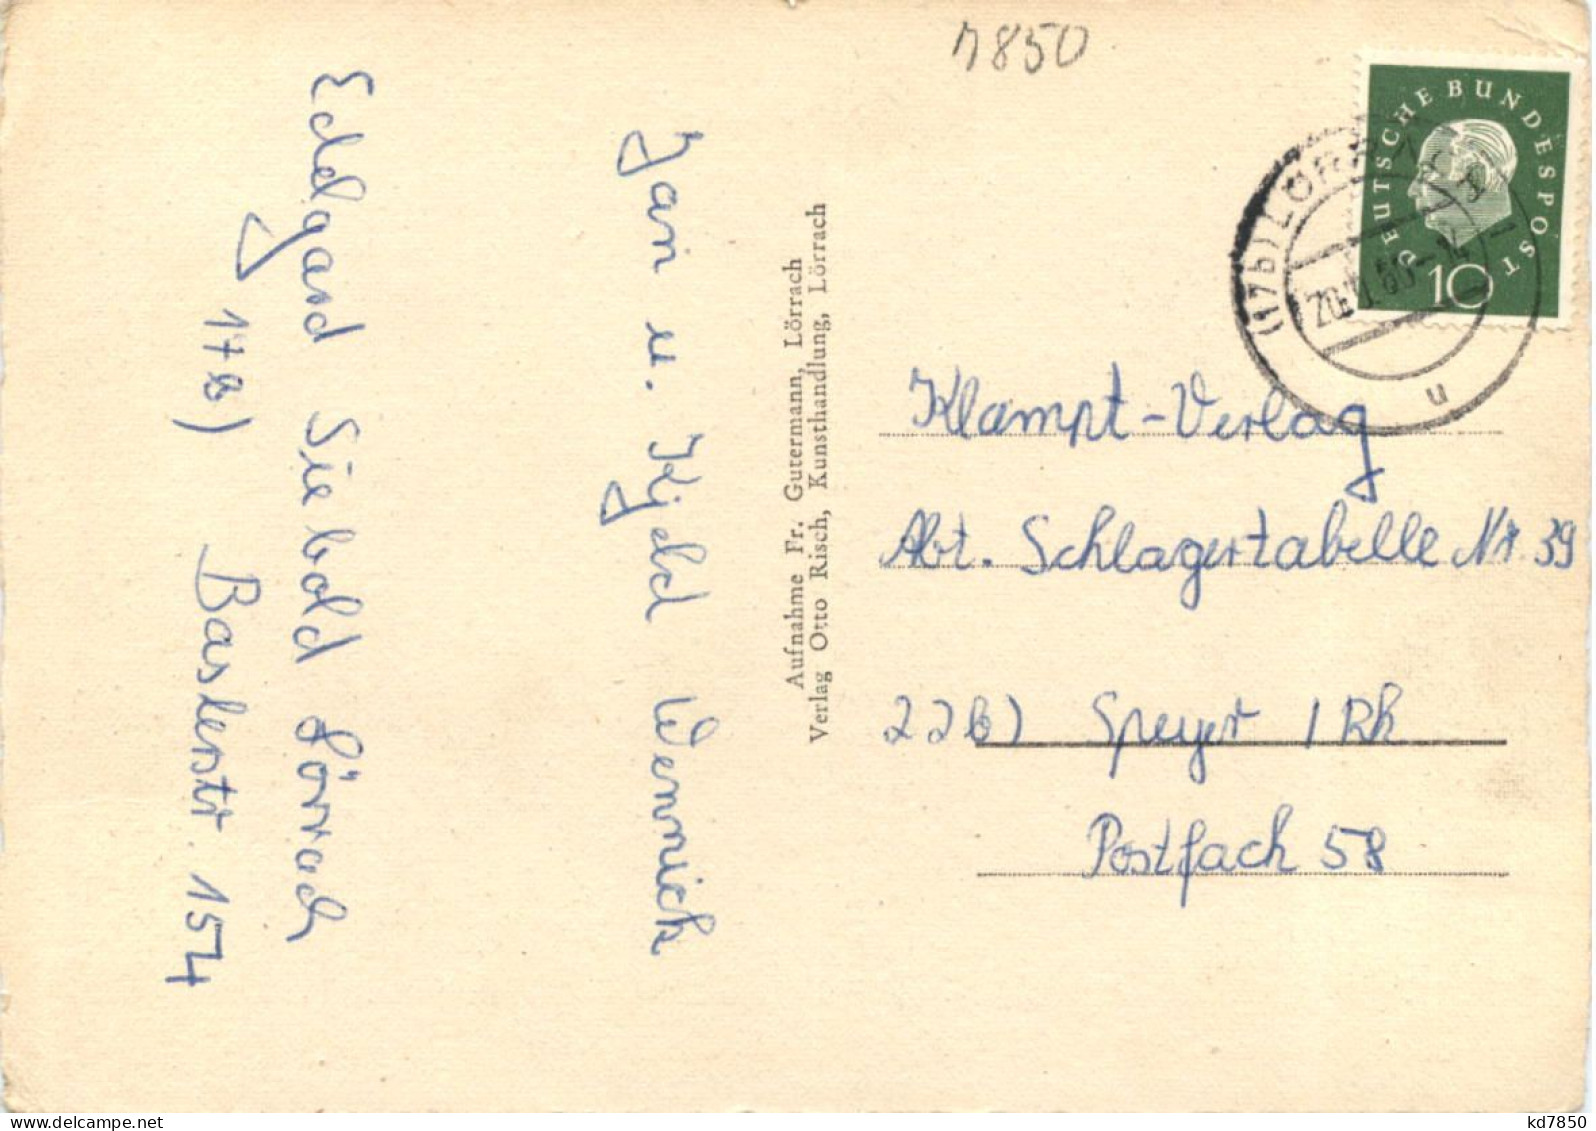 Edelgard Siebold Lörrach
17b) Baslerstr. 154
Jan u. Kjeld Wennick
Aufnahme Fr. Gutermann, Lörrach
Verlag Otto Risch, Kunsthandlung, Lörrach
7850
DEUTSCHE BUNDESPOST
10
(17b) LÖRRACH
u
Klampt-Verlag
Abt. Schlagertabelle Nr. 39
22b) Speyer / Rh
Postfach 58
www.delcampe.net
kd7850